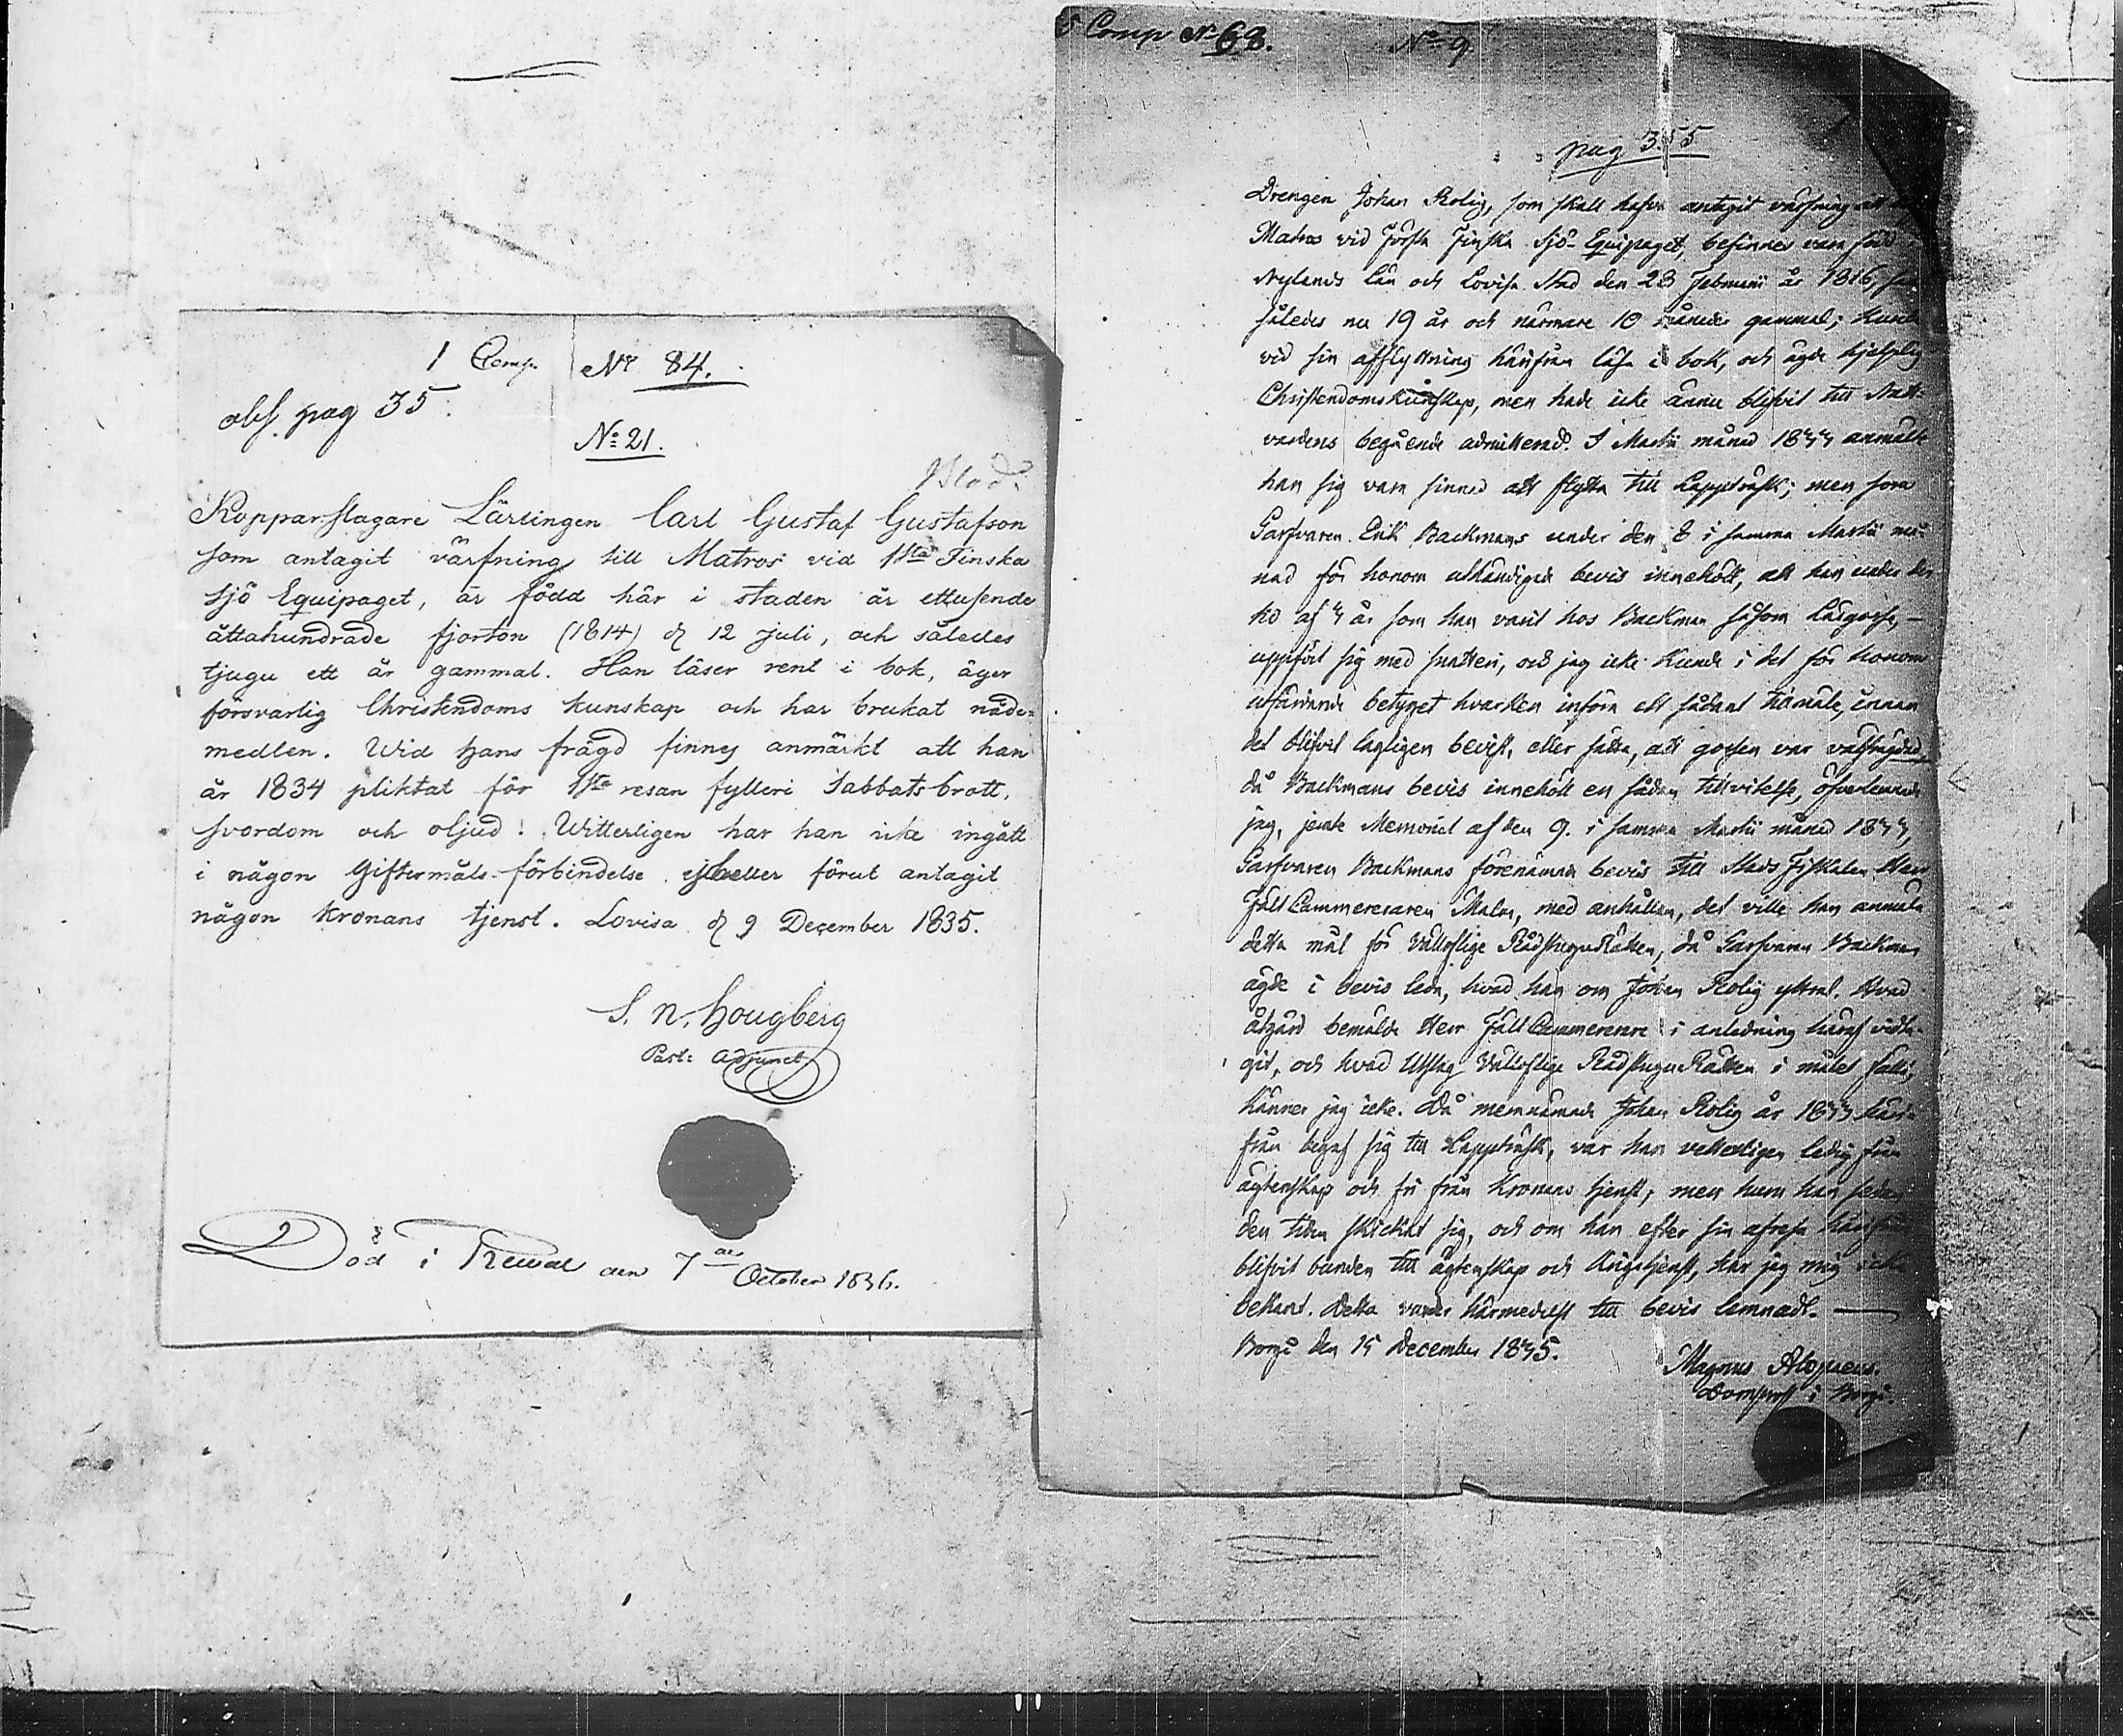 1 Comp. Nr 84.
abs. pag 35.
No: 21.
Kopparslagare Lärlingen Carl Gustaf Gustafson
som antagit värfning till Matros vid 1sta Finska
Sjö Equipaget, är född här i staden år ettusende
åttahundrade fjorton (1814) d 12 Juli, och således
tjugu ett år gammal. Han läser rent i bok, äger
försvarlig Christendoms kunskap och har brukat nåde-
medlen. Wid hans frägd finnes anmärkt att han
år 1834 pliktat för 1sta resan fylleri Sabbats brott,
svordom och oljud! Witterligen har han icke ingått
i någon Giftermåls-förbindelse ej heller förut antagit
någon Kronans tjenst. Lovisa d 9 December 1835.
S. N. Hougberg
Past: Adjunct
Död i Rewal den 7de October 1836.
Comp No 68. No 9
pag 355
Drengen Johan Rolig, som skall hafva antagit värfning
Matros vid Första Finska Sjö-Equipaget, befinnes vara född
Nylands Län och Lovisa Stad den 23 Februarii år 1816,
således nu 19 år och närmare 10 månader gammal; kunde
vid sin afflyttning härifrån läsa i bok, och ägde hjelplig
Christendomskunskap, men hade icke ännu blifvit till Natt-
vardens begående admitterad. I Martii månad 1833 anmälte
han sig vara sinnad att flytta till Lappträsk; men som
Garfvaren Erik Backmans under den 8 i samma Martii må-
nad för honom uthändigade bevis innehöll, att han under den
tid af 3 år som han varit hos Backman såsom Lärgosse, -
uppfört sig med snatteri, och jag icke kunde i det för honom
utfärdande betyget hvarken införa ett sådant tilmäle, innan
det blifvit lagligen bevist, eller sätta, att gossen var välfrägdad,
då Backmans bevis innehöll en sådan tillvitelse, öfverlemnade
jag, jemte Memorial af den 9. i samma Martii månad 1833,
Garfvaren Backmans förenämnde bevis till Stads Fiskalen Herr
Fält Cammereraren Malm, med anhållan, det ville han anmäla
detta mål för Välloflige RådstuguRätten, då Garfvaren Backman
ägde i bevis leda, hvad han om Johan Rolig yttrat. Hvad
åtgärd bemälde Herr Fält Cammererare i anledning häraf vidta-
git, och hvad Utslag Välloflige RådstuguRätten i målet fällt,
känner jag icke. Då mernämnde Johan Rolig år 1833 härı-
från begaf sig till Lappträsk, var han vetterligen ledig från
ägtenskap och fri från Kronans tjenst; men huru han sedan
den tiden skickat sig, och om han efter sin afresa härifrån
blifvit bunden till ägtenskap och Krigstjenst, är jag mig icke
bekant. Detta varder härmedelst till bevis lemnadt. —
Borgå den 15 December 1835.
Magnus Alopaeus.
Domprost i Borgå.